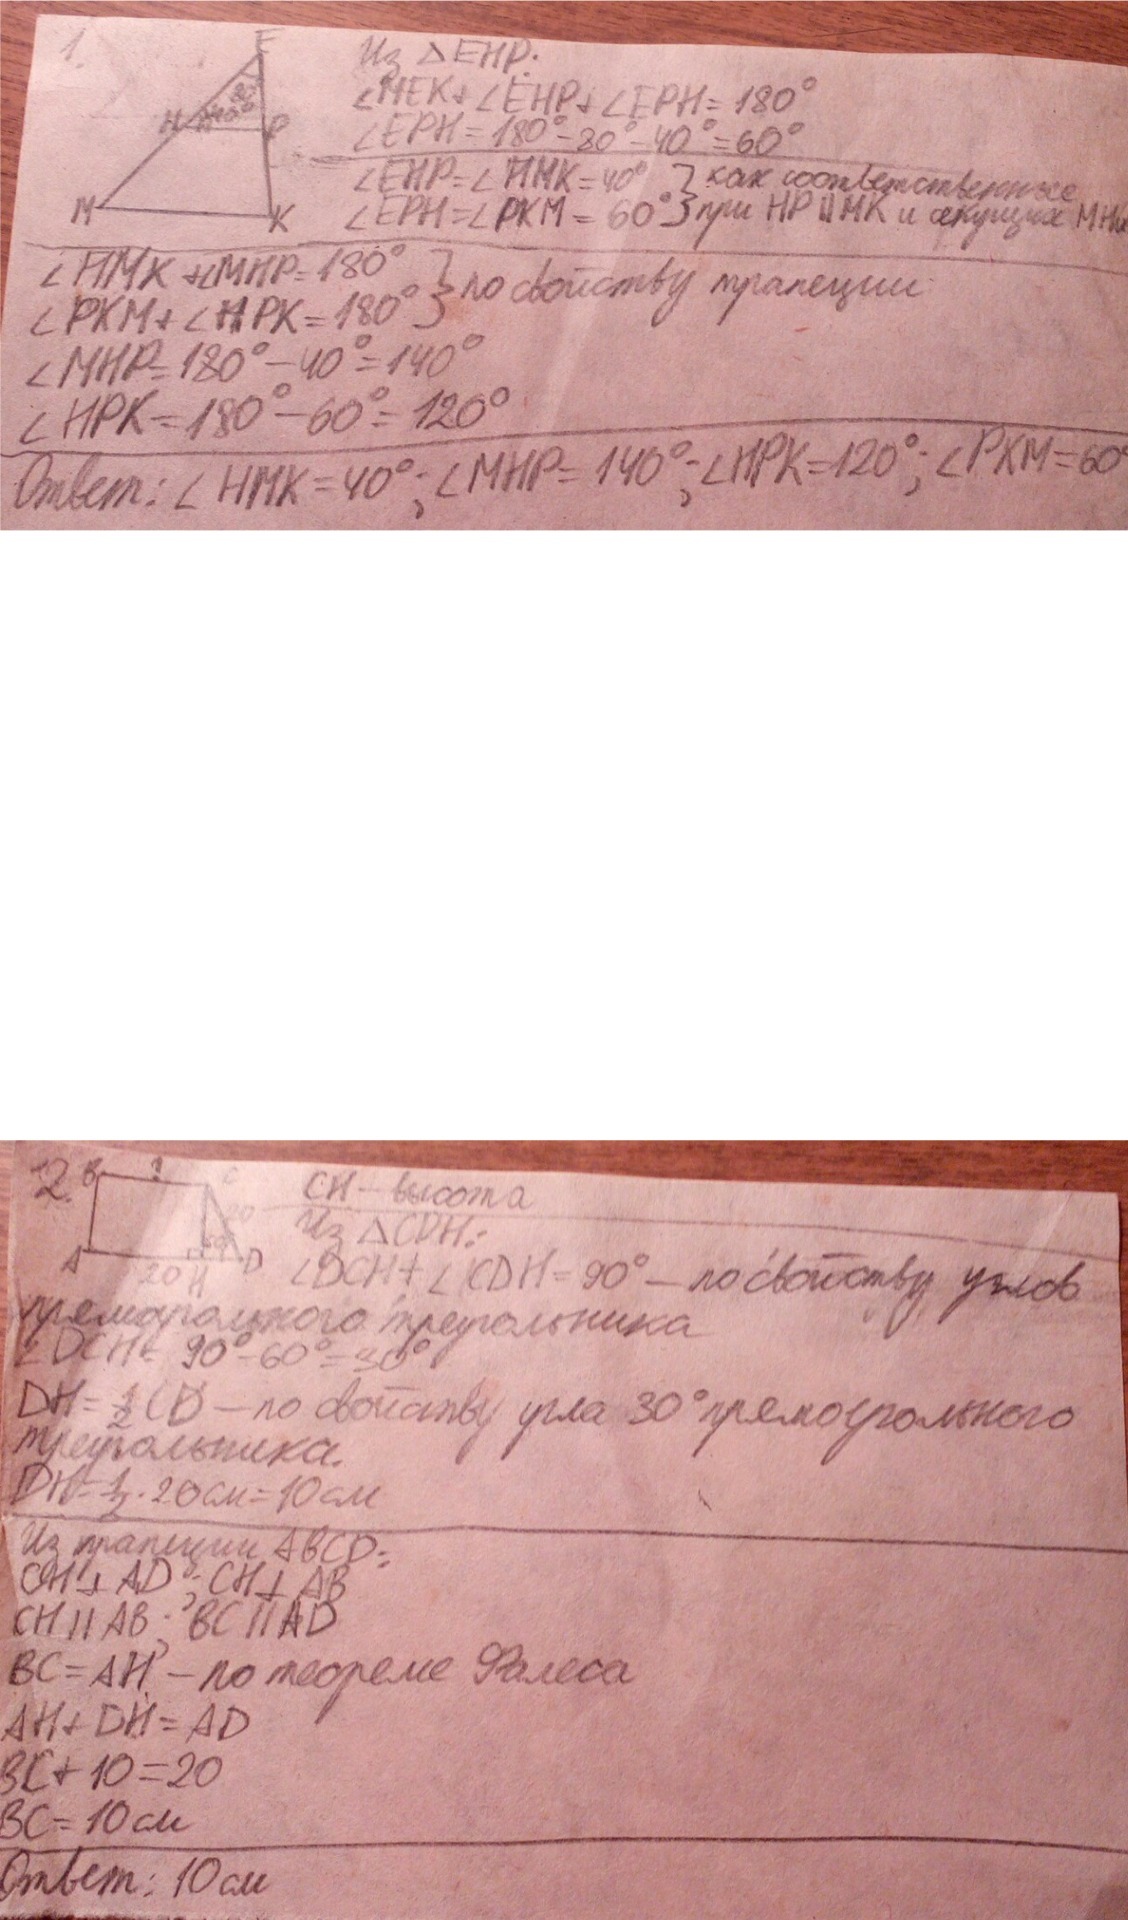 1.
E
80°
H 40° P
M K
Из △EHP:
∠MEK+∠EHP+∠EPH=180°
∠EPH=180°-80°-40°=60°
∠EHP=∠HMK=40° } как соответственные
∠EPH=∠PKM=60° } при HP∥MK и секущих MH
∠HMK+∠MHP=180° } по свойству трапеции
∠PKM+∠HPK=180° }
∠MHP=180°-40°=140°
∠HPK=180°-60°=120°
Ответ: ∠HMK=40°; ∠MHP=140°; ∠HPK=120°; ∠PKM=60°
2.
B ? C
20
60°
A H D
20
CH - высота
Из △CDH:
∠DCH+∠CDH=90° - по свойству углов
прямоугольного треугольника
∠DCH=90°-60°=30°
DH=1/2CD - по свойству угла 30° прямоугольного
треугольника.
DH=1/2·20см=10см
Из трапеции ABCD:
CH⊥AD; CH⊥AB
CH∥AB; BC∥AD
BC=AH - по теореме Фалеса
AH+DH=AD
BC+10=20
BC=10см
Ответ: 10см